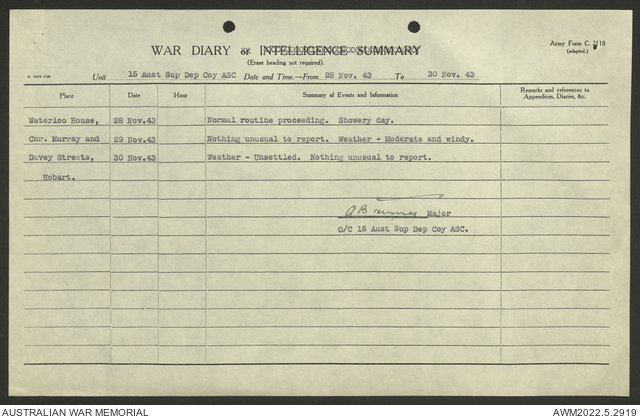 WAR DIARY or INTELLIGENCE SUMMARY
Army Form C. 2118
(adapted.)
(Erase heading not required).
Unit 15 Aust Sup Dep Coy ASC Date and Time.—From 28 Nov. 43 To 30 Nov. 43
Place Date Hour Summary of Events and Information Remarks and references to Appendices, Diaries, &c.
Waterloo House, 28 Nov.43 Normal routine proceeding. Showery day.
Cnr. Murray and 29 Nov.43 Nothing unusual to report. Weather - Moderate and windy.
Davey Streets, 30 Nov.43 Weather - Unsettled. Nothing unusual to report.
Hobart.
Major
O/C 15 Aust Sup Dep Coy ASC.
AUSTRALIAN WAR MEMORIAL AWM2022.5.2919